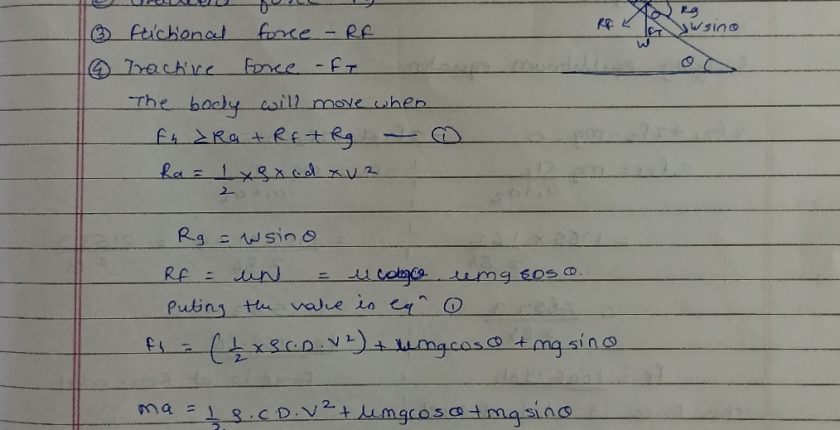 ② Gradient force Rg
③ Frictional force - Rf
④ Tractive force - FT
Rg
Rf
FT
Wsinθ
W
θ
The body will move when
Ft ≥ Ra + Rf + Rg — ①
Ra = 1/2 × ρ × cd × V²
Rg = Wsinθ
Rf = μN = μmg cosθ.
Puting the value in eqⁿ ①
Ft = (1/2 × ρ C.D. V²) + μmgcosθ + mg sinθ
ma = 1/2 ρ. CD. V² + μmgcosθ + mg sinθ